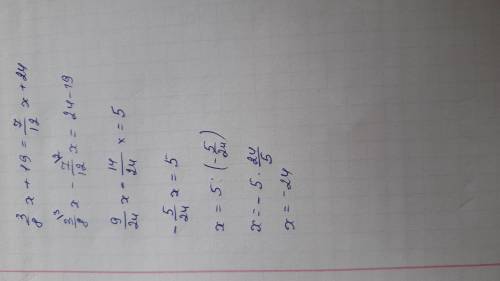 3/8 x + 19 = 7/12 x + 24
3/8 x - 7/12 x = 24 - 19
9/24 x - 14/24 x = 5
- 5/24 x = 5
x = 5 : (- 5/24)
x = - 5 · 24/5
x = - 24